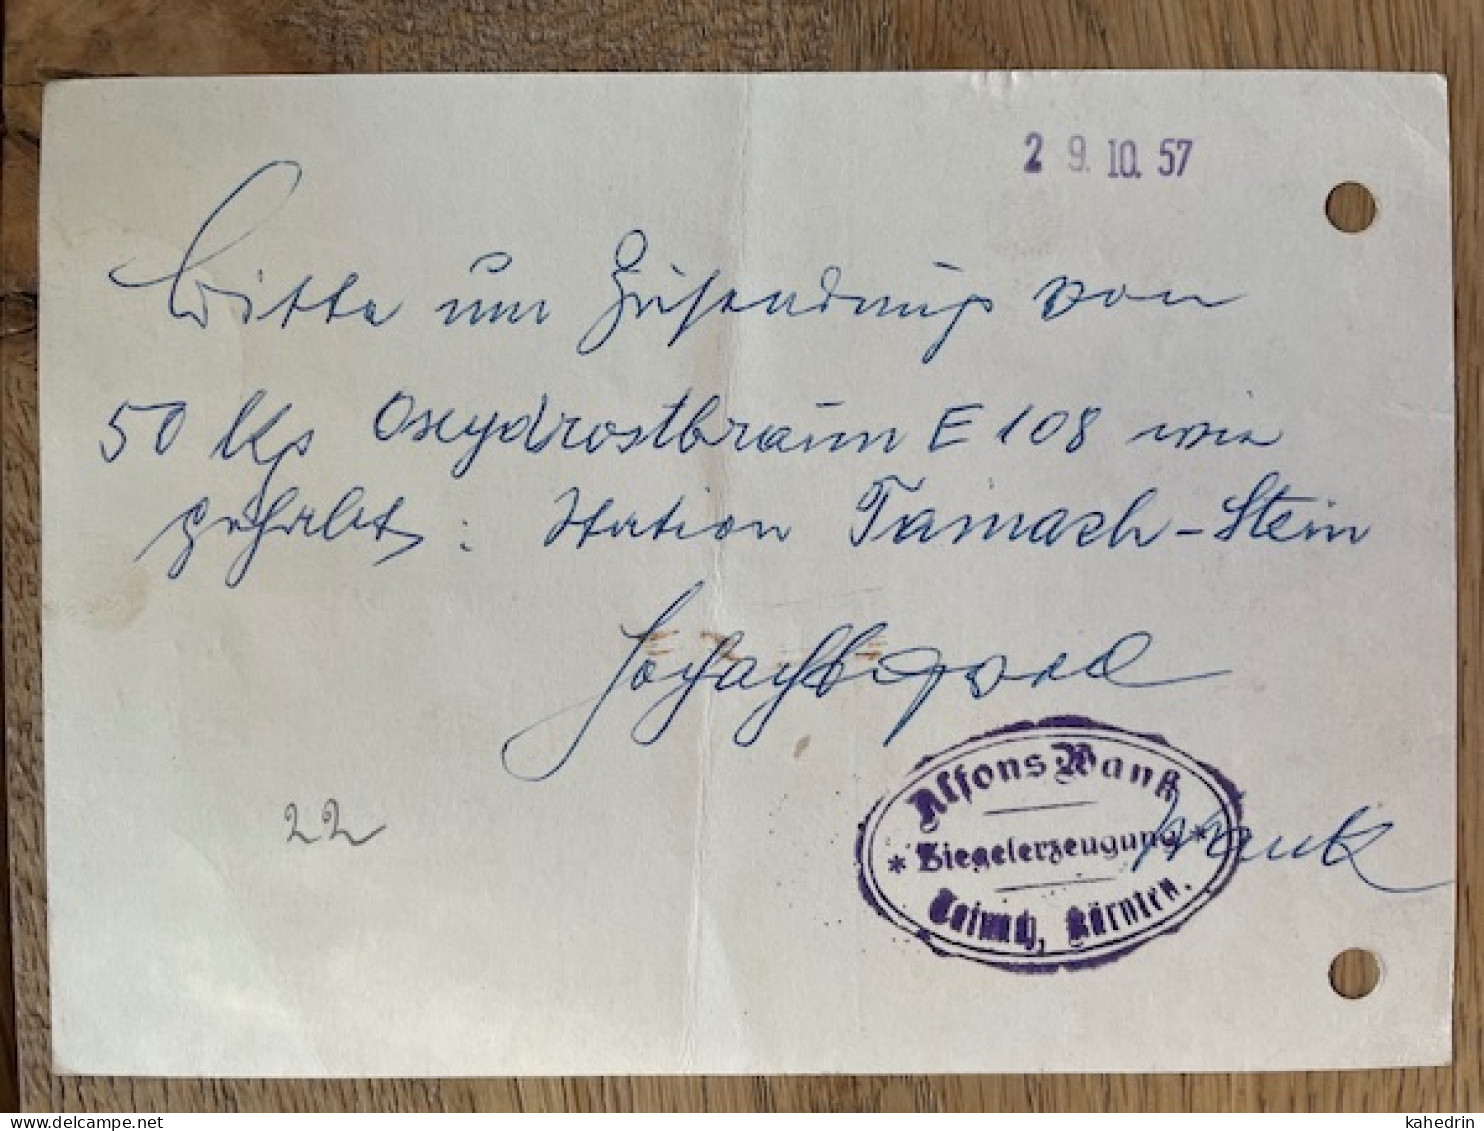 29.10.57
Bitte um Zusendung von
50 Kg Oxydrostbraun E 108 wie
gehabt: Station Tainach-Stein
Hochachtungsvoll
Alfons Wank
* Ziegelerzeugung *
Tainach, Kärnten.
Wank
22
kahedrin